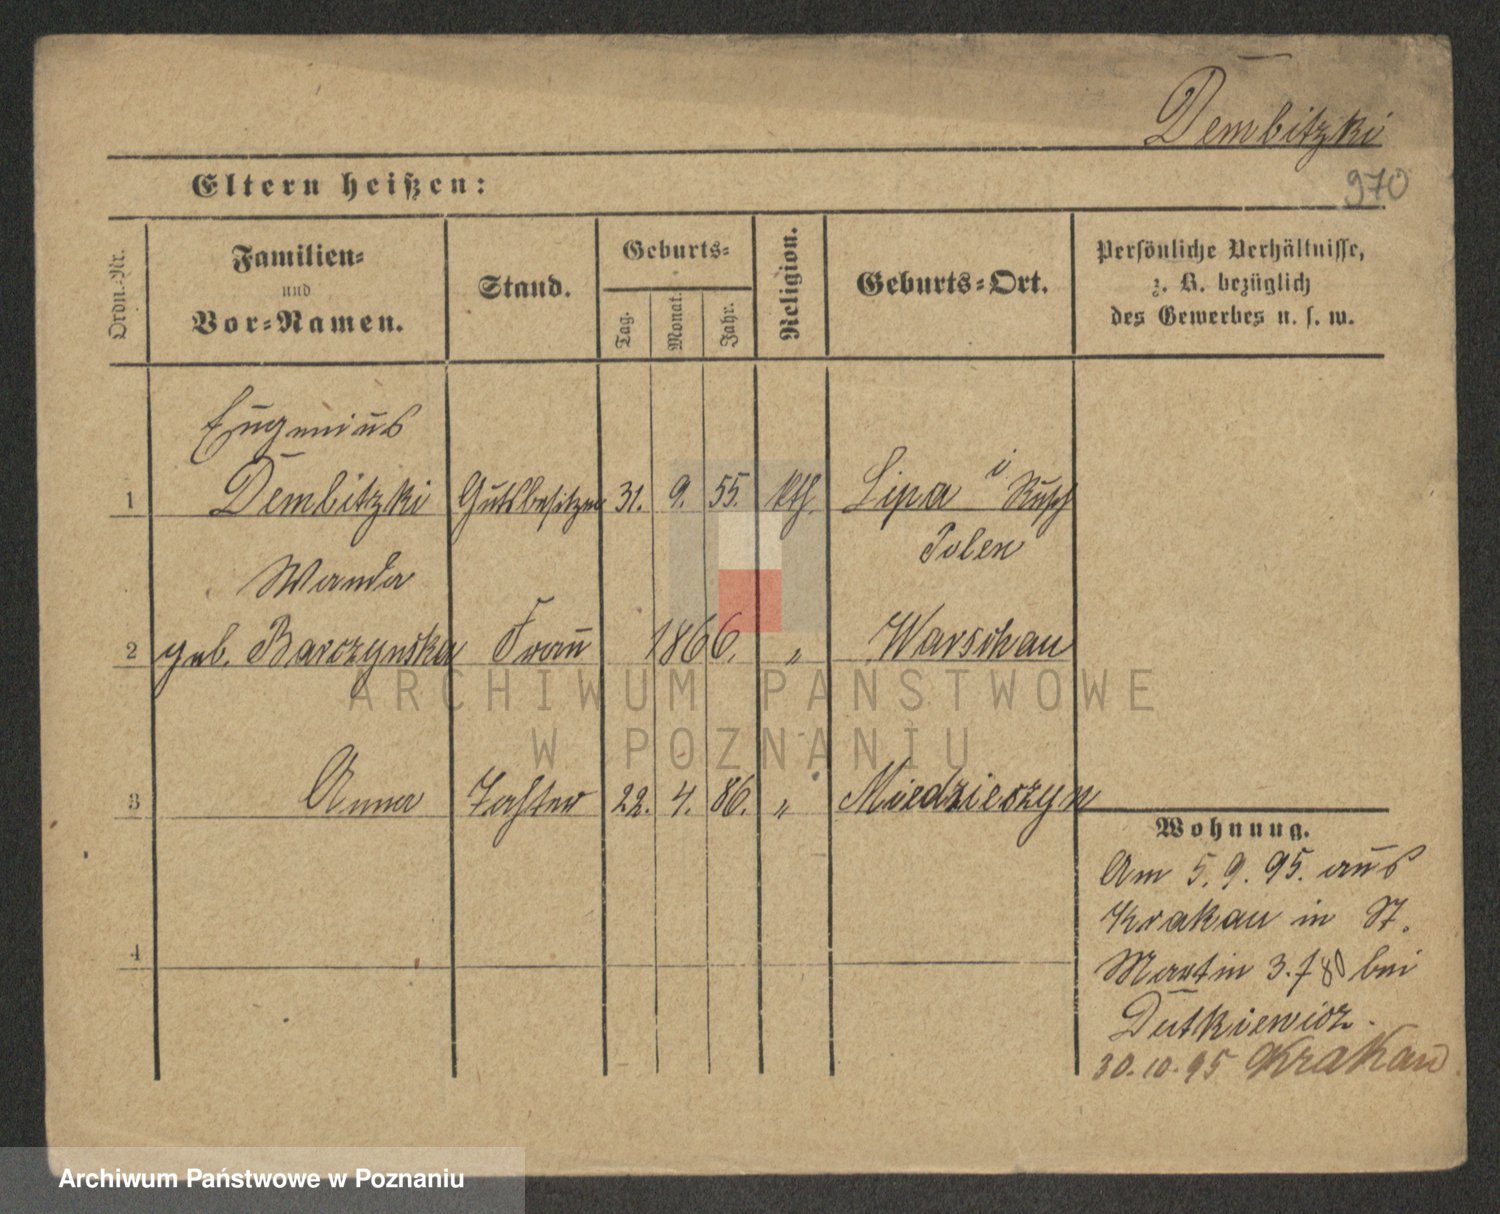 Dembitzki
970
Eltern heißen:
Ordn.-Nr.
Familien-
und
Vor-Namen.
Stand.
Geburts-
Tag.
Monat.
Jahr.
Religion.
Geburts-Ort.
Persönliche Verhältnisse,
z. B. bezüglich
des Gewerbes u. s. w.
Eugenius
1 Dembitzki Gutsbesitzer 31. 9. 55. kth. Lipa i Russ
Polen
Wanda
2 geb. Barczynska Frau 1866. " Warschau
3 Anna Tochter 22. 4. 86. " Miedzieszyn
Wohnung.
Am 5. 9. 95. aus
Krakau in St.
4
Martin 80 bei
Dutkiewicz.
30.10.95 Krakau
ARCHIWUM PAŃSTWOWE
W POZNANIU
Archiwum Państwowe w Poznaniu